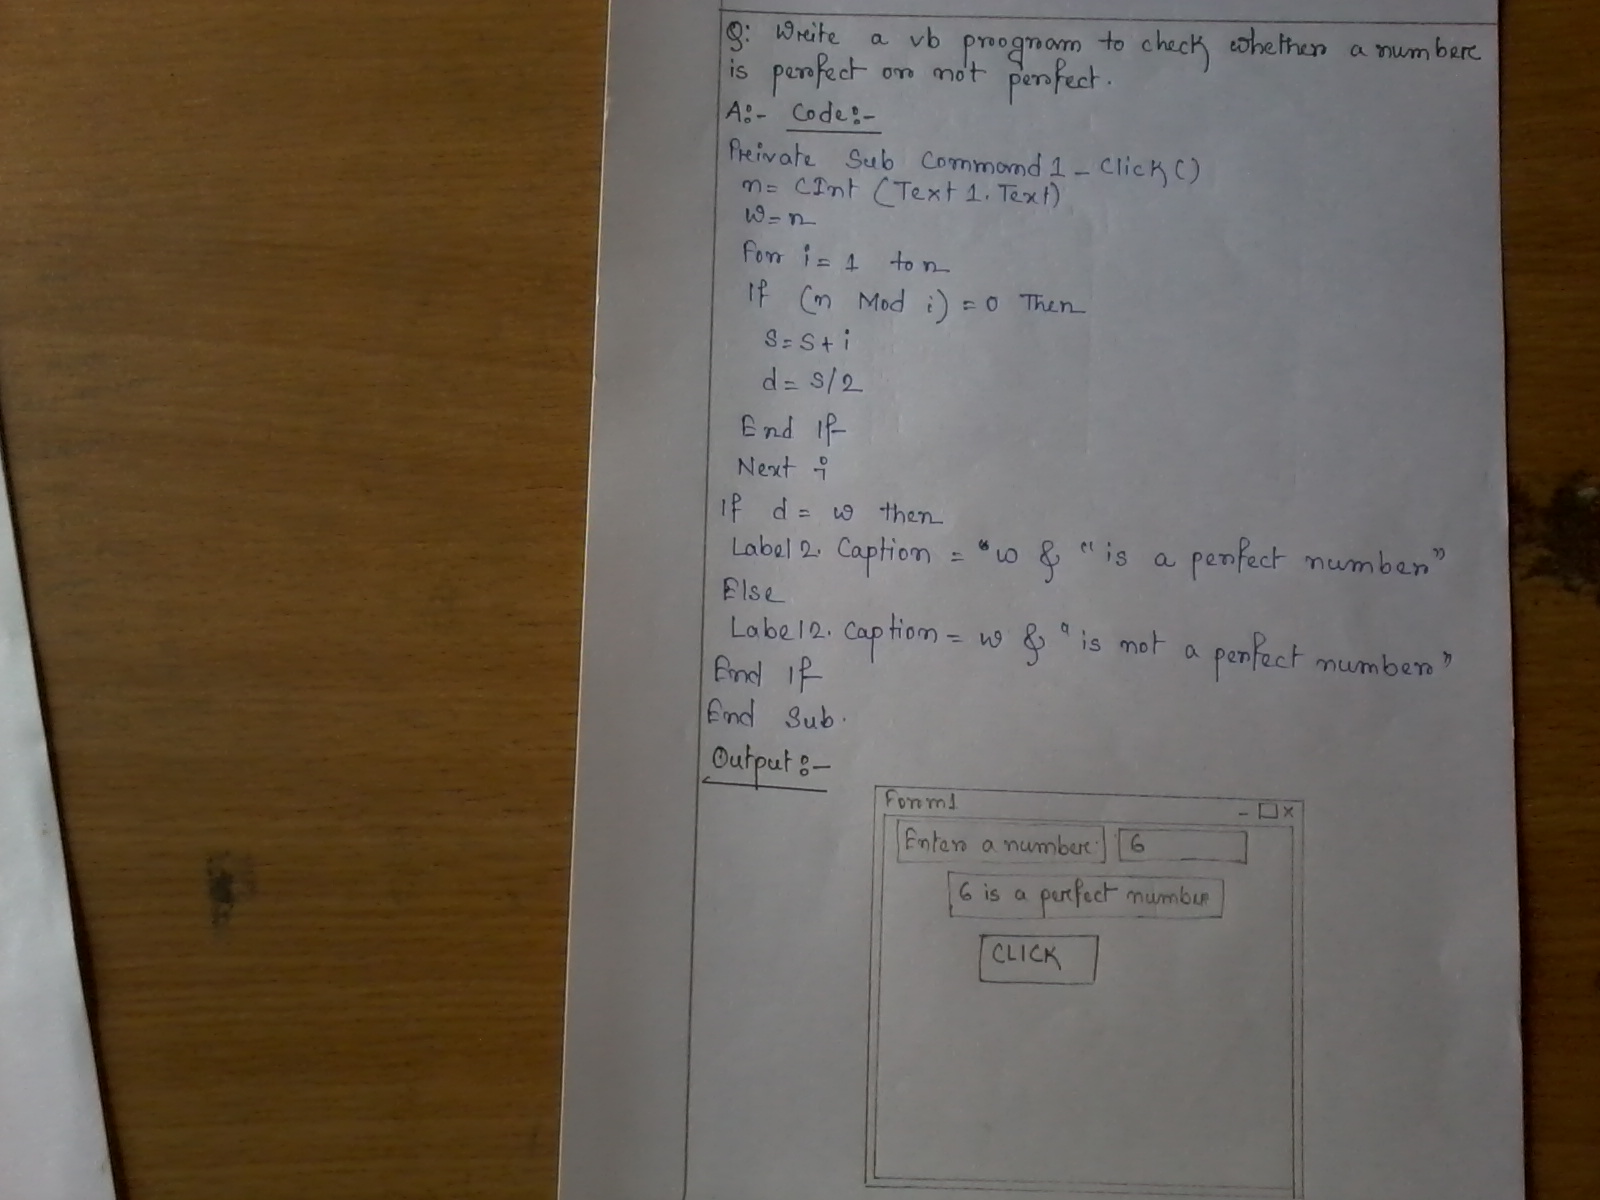 Q: Write a vb program to check whether a number
is perfect or not perfect.
A:- Code:-
Private Sub Command1_Click()
n= CInt (Text1.Text)
w=n
For i=1 to n
If (n Mod i)=0 Then
S=S+i
d=S/2
End If
Next i
If d=w then
Label2.Caption = "w & " is a perfect number"
Else
Label2.Caption = w & " is not a perfect number"
End If
End Sub.
Output:-
Form1 - □ x
Enter a number: 6
6 is a perfect number
CLICK